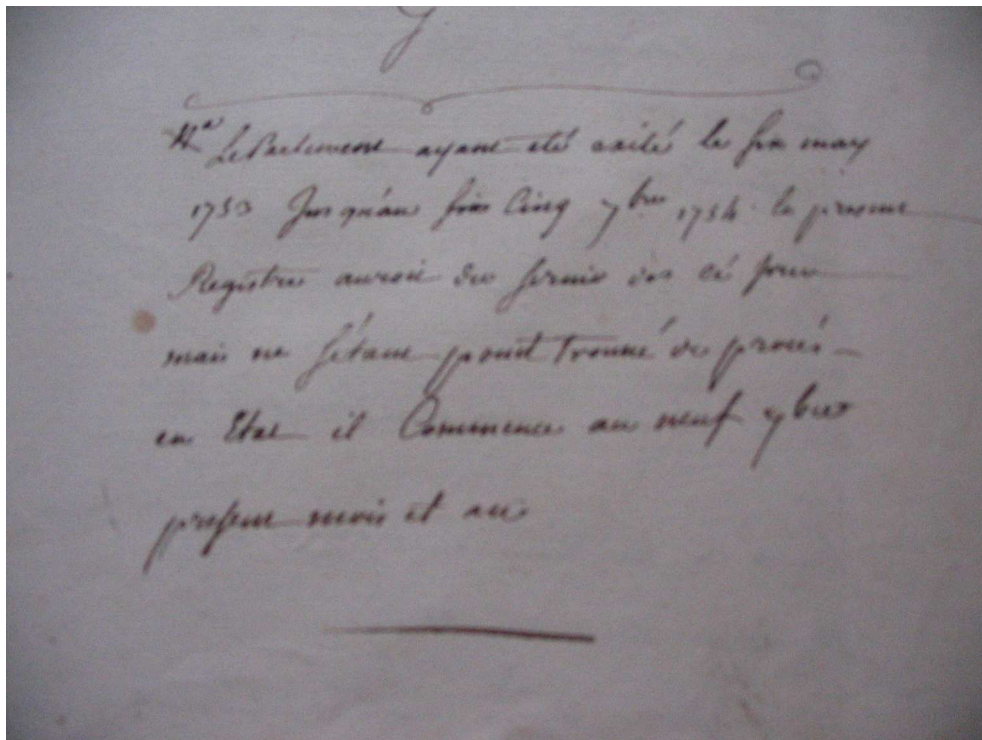 Na Le Parlement ayant eté exilé le six may
1753 Jusqu'au Cinq 7bre 1754 le present
Registre auroit du servir des cé jour
mais ne s'étant point trouvé de procés
en Etat il Commence au neuf 7bre
present mois et an